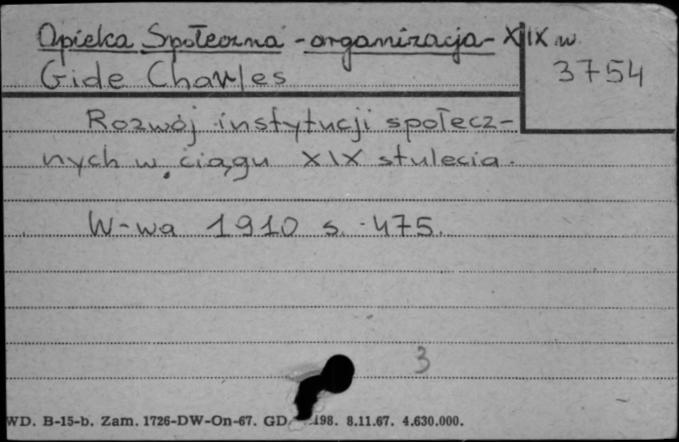 Opieka Społeczna - organizacja - XIX w.
3754
Gide Charles
Rozwój instytucji społecz-
nych w ciągu XIX stulecia.
W-wa 1910 s. 475.
3
WD. B-15-b. Zam. 1726-DW-On-67. GD 198. 8.11.67. 4.630.000.